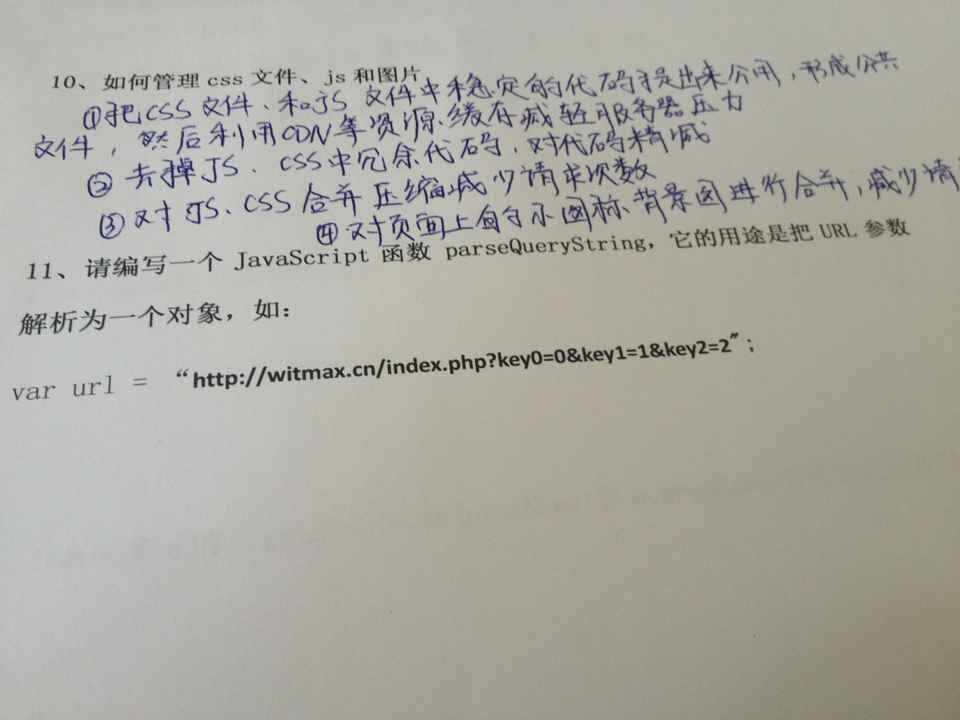 10、如何管理 css 文件、js 和图片
①把CSS 文件、和JS 文件中稳定的代码提出来公用，形成公共
文件，然后利用CDN等资源缓存减轻服务器压力
② 去掉JS、CSS中冗余代码，对代码精减
③ 对JS、CSS 合并压缩减少请求次数
④对页面上的小图标背景图进行合并，减少请
11、请编写一个 JavaScript 函数 parseQueryString，它的用途是把 URL 参数
解析为一个对象，如：
var url = “http://witmax.cn/index.php?key0=0&key1=1&key2=2”;